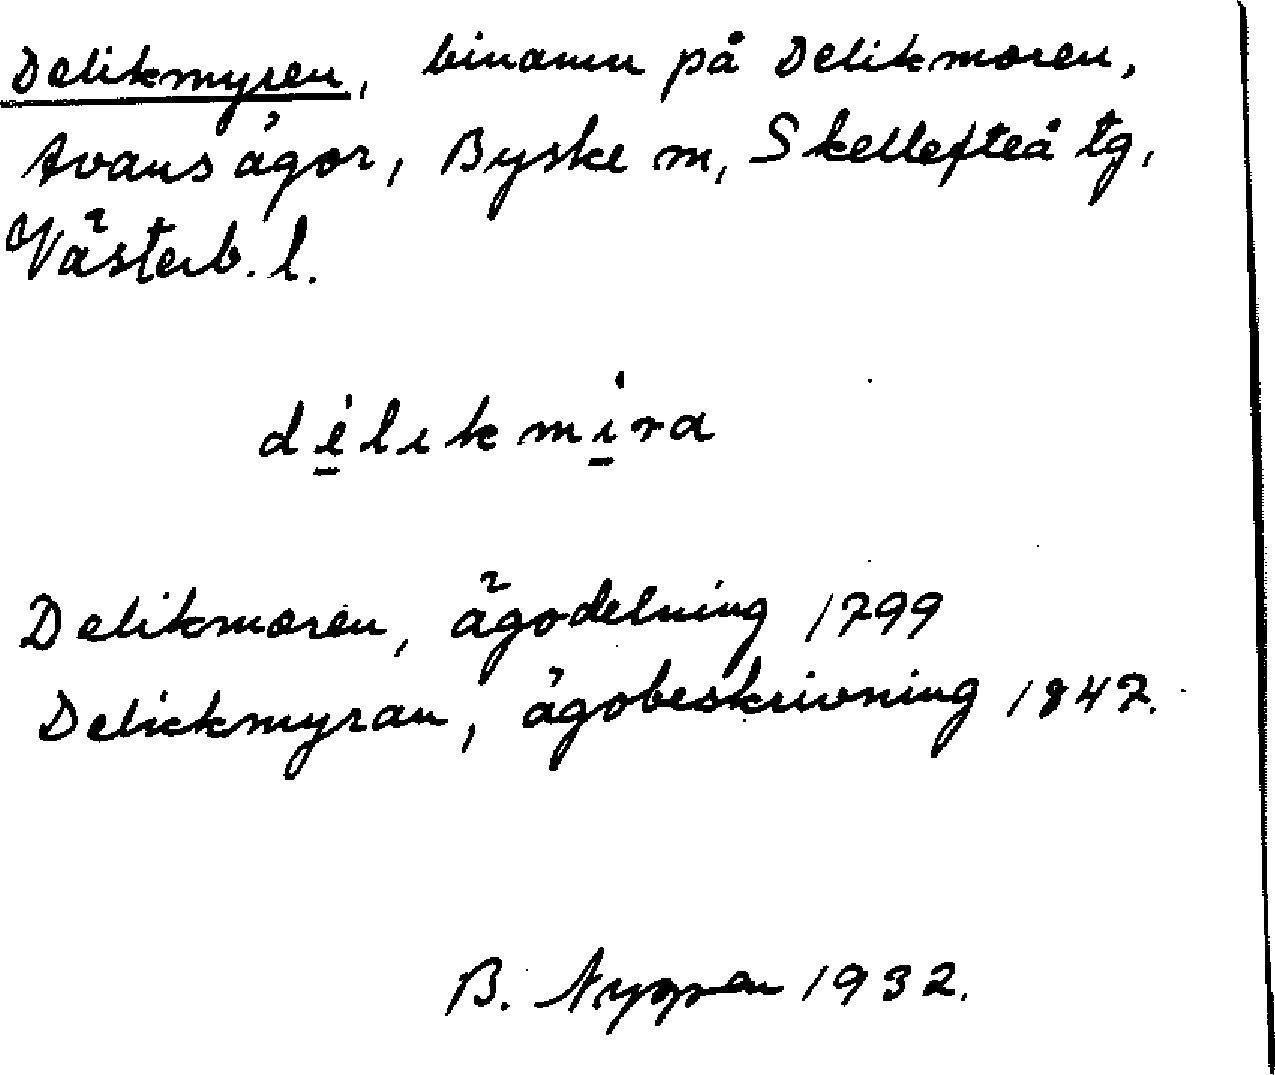 Delikmyren, binamn på Delikmoren,
Avans ägor, Byske m, Skellefteå tg,
Västerb. l.
dėlıkmịra
Delikmoren, ägodelning 1799
Delickmyran, ägobeskrivning 1847.
B. Nygren 1932.